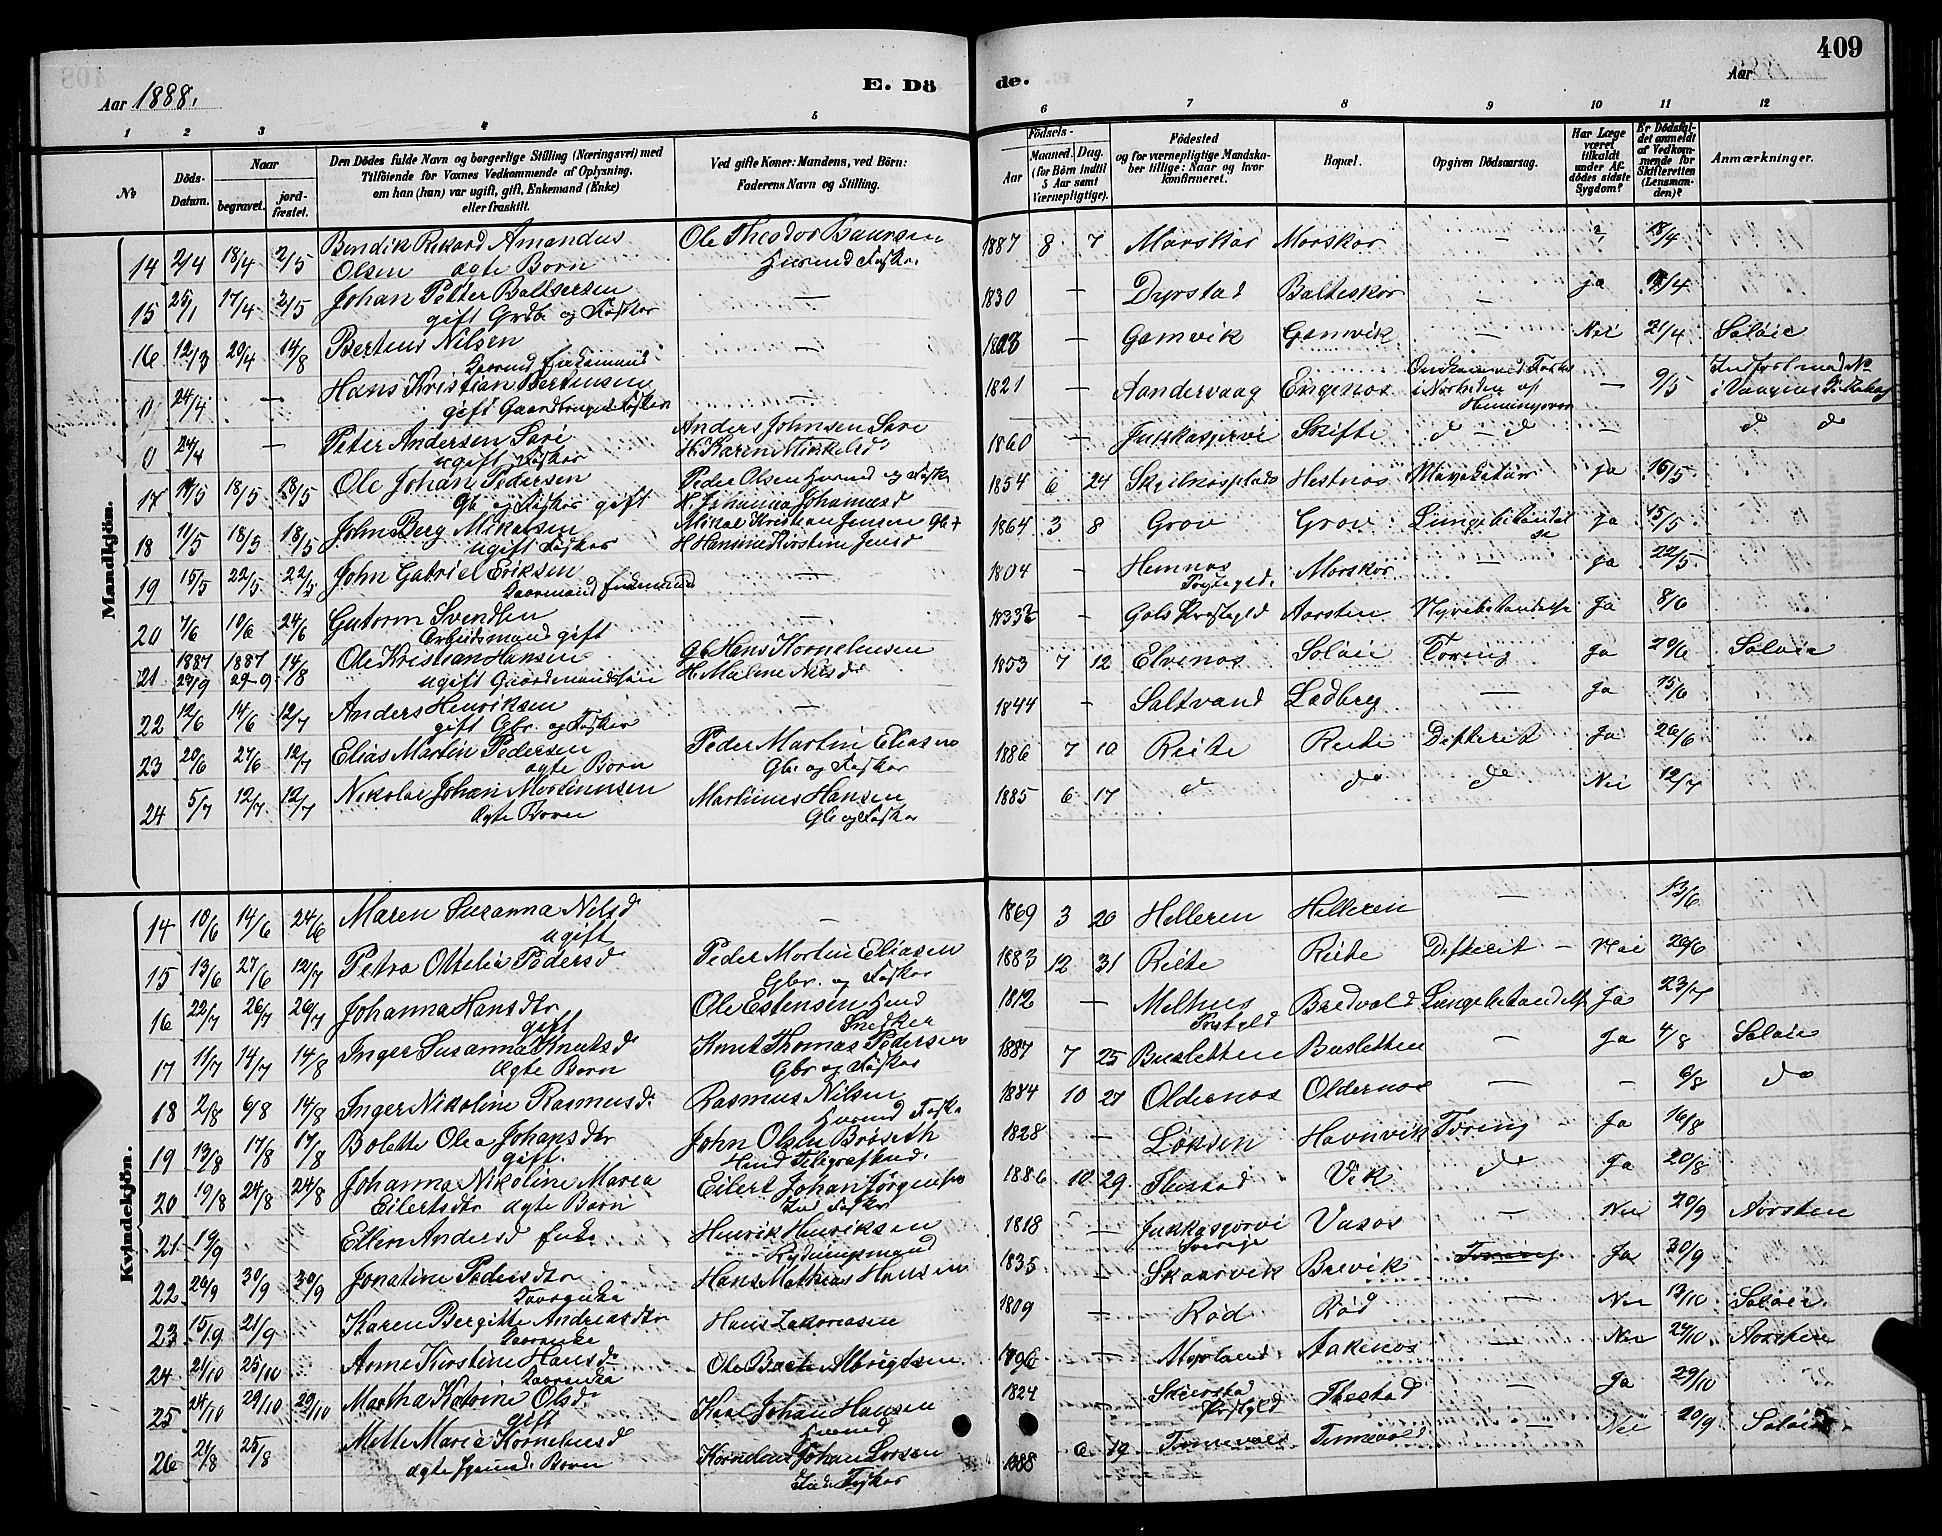 409
Aar 1888.
E. Dö
de.
Aar
1 2 3 4 5 6 7 8 9 10 11 12
No
Döds-
Datum.
Naar
begravet.
jord-
fæstet.
Den Dödes fulde Navn og borgerlige Stilling (Næringsvei) med
Tilföiende for Voxnes Vedkommende af Oplysning,
om han (hun) var ugift, gift, Enkemand (Enke)
eller fraskilt.
Ved gifte Koner: Mandens, ved Börn:
Faderens Navn og Stilling.
Födsels-
Aar
Maaned. Dag.
(for Börn indtil
5 Aar samt
Værnepligtige).
Födested
og for værnepligtige Mandska-
ber tillige: Naar og hvor
konfirmeret.
Bopæl.
Opgiven Dödsaarsag.
Har Læge
været
tilkaldt
under Af-
dödes sidste
Sygdom?
Er Dödsfal-
det anmeldt
af Vedkom-
mende for
Skifteretten
(Lensman-
den)?
Anmærkninger.
Mandkjön.
14 2/4 18/4 2/5 Bendik Rikard Amandus Olsen ægte Barn Ole Theodor Baarsen 1887 8 7 Morskar Morskar — 18/4
15 25/1 17/4 2/5 Johan Petter Baltsersen gift Grdb. og Fisker — 1830 — Dyrstad Balteskar — ja
16 12/3 20/4 14/8 Berteus Nilsen Enkemand — — Gamvik Gamvik — Nei 21/4 Saløie
0 24/4 — Hans Kristian Bertensen gift Gaardbruger Fisker — 1821 — Aandervaag Engenos — 9/5
0 24/4 — Peter Andersen Sari ugift Fisker Anders Johnsen Sari H. Karin Mikkelsd 1860 — Jukkasjervi Skifte d — d — d d
17 18/5 Ole Johan Pedersen Gb. og Fisker gift Peder Olsen H. Johanna Johannesd 1854 6 24 Hestnes Mavekatar ja 16/5
18 11/5 18/5 18/5 John Berg Mikalsen ugift Fisker Mikal Kristian Jensen H Hansine Kirstine Jensd 1864 3 8 Grov Grov Lungebetændelse ja 15/5
19 15/5 22/5 22/5 John Gabriel Eriksen Enkemand — 1804 — Hemnes Prgjeld. Morskar — ja 22/5
20 7/6 10/6 24/6 Gutorm Svendsen Arbeidsmand gift — — Aarsten Nyrebetændelse Ja 8/6
21 1887 1887 29-9 14/8 Ole Kristian Hansen ugift Gaardmandssøn Hans Kornelius­sen H. Maline Nilsd 1853 7 12 Elvenes Saløie Tæring Ja 20/6 Saløie
22 12/6 14/6 12/7 Anders Henriksen gift Gbr. og Fisker — 1844 — Saltvand Ladberg — ja 15/6
23 20/6 27/6 12/7 Elias Martin Pedersen ægte Barn Peder Martin Eliasen Gbr. og Fisker 1886 7 10 Reite Reite Difterit Ja 26/6
24 5/7 12/7 12/7 Nikolai Johan Martinusen ægte Barn Martinus Hansen Gb. og Fisker 1885 6 17 d do do Nei 12/7
Kvindekjön.
14 10/6 14/6 24/6 Maren Susanna Nilsd ugift — 1869 3 20 Helleren Helleren — 13/6
15 13/6 27/6 12/7 Petra Ottelia Pedersd Peder Martin Eliasen Gbr. og Fisker 1883 12 31 Reite Reite Difterit — Nei 26/6
16 22/7 26/7 26/7 Johanna Hansdtr gift Ole Estensen Snedker 1812 — Melhus Prstgjeld Bredvold Lungebetændelse Ja 23/7
17 11/7 14/7 14/8 Inger Susanna Knutsd ægte Barn Knut Thomas Pedersen Gbr. og Fisker 1887 7 25 Busletten Busletten — Ja 4/8 Saløie
18 2/8 6/8 14/8 Inger Nikoline Rasmusd. Rasmus Nilsen 1884 10 27 Oldernes Oldernes — — 6/8 do
19 13/8 17/8 17/8 Bolette Olea Johansdtr gift. John Olsen Brøseth 1828 — Løksen Havnvik Tæring — Ja 16/8
20 19/8 24/8 24/8 Johanna Nikoline Maria Eilertsdtr ægte Barn Eilert Johan Jørgensen Ind. Fisker 1886 10 29 Ibestad Vik do Ja 20/8
21 19/9 Ellen Andersd Enke Henrik Henriksen Rydningsmand 1818 — Jukkasjærvi Sverige Vasos — Nei 20/9 Aarsten
22 20/9 30/9 30/9 Jonatine Pedersdtr Hans Mathias Hansen 1835 — Skaarvik Brevik Tæring Ja 30/9
23 15/9 21/9 Karen Bergitte Andreasdtr Hans Zakariasen 1809 — Rød Rød Nei 13/10 Saløie
24 21/10 25/10 Anne Kirstine Hansd — Myrland Aakenes — Nei 24/10 Aarsten
25 24/10 29/10 29/10 Martha Katrine Olsd gift Karl Johan Hansen 1824 — Skjerstad Prstgjeld Ibestad — Ja 29/10
26 21/8 25/8 Mette Marie Korneliusd ægte Barn Kornelius Johan Larsen Ind. Fisker 1888 6 19 Tennevold Tennevold — Nei 20/9 Saløie